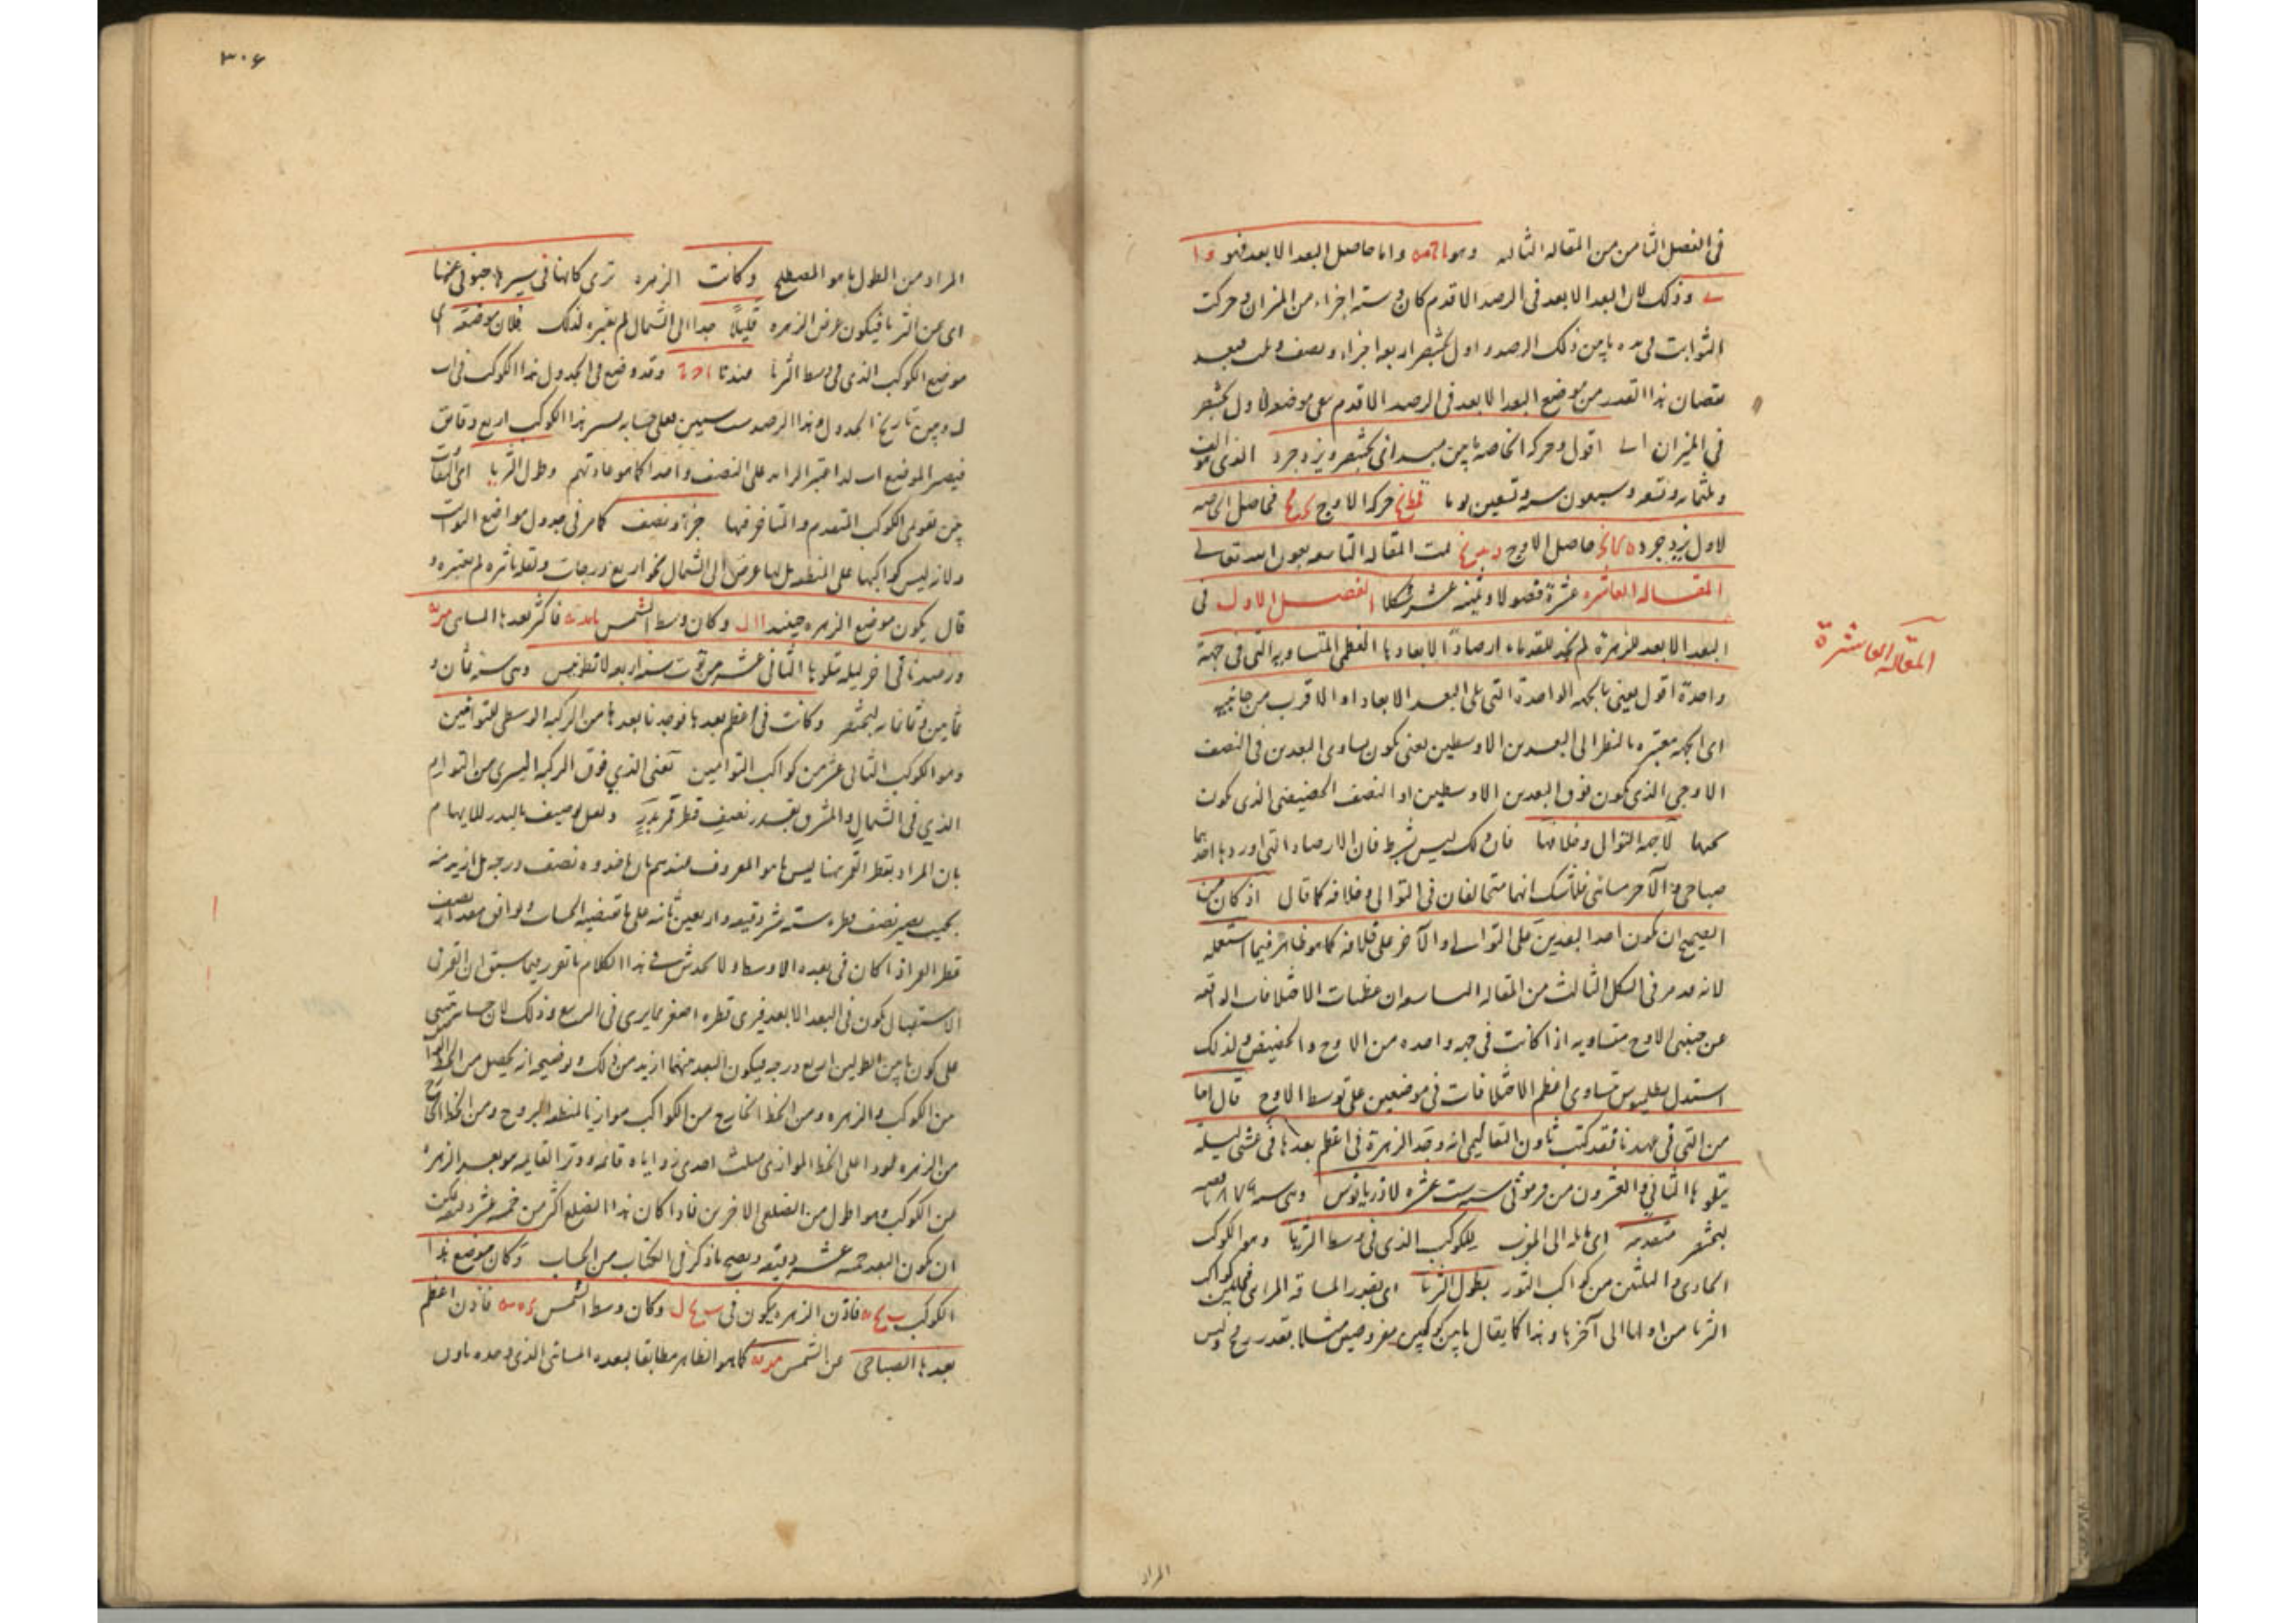 فى الفصل الثامن من المقاله الثالثه وهو واما حاصل البعد الابعد فهو
وذلك لان البعد الابعد فى الرصد الاقدم كان و ستة اجزاء من الميزان وحركت
الثوابت فى مده مابين ذلك الرصد واول بختنصر اربعة اجزاء ونصف وثلث فبعد
نقصان هذا القدر من موضع البعد الابعد فى الرصد الاقدم بقى موضعه لاول بختنصر
فى الميزان اقول وحركه الخاصه مابين مبدأى بختنصر ويزدجرد الذى هو الف
وثلثمايه وتسعه وسبعون سنه وتسعين يوما حركه الاوج فحاصل الخاصه
لاول يزدجرد حاصل الاوج تمت المقاله التاسعه بعون الله تعالى
المقاله العاشره عشرة فصولا وثمنيه عشر شكلا الفصل الاول فى
البعد الابعد للزهرة لم نجد للقدماء ارصادا لابعادها العظمى المتساويه التى فى جهة
واحدة اقول يعنى بالجهه الواحدة التى تلى البعد الابعد او الاقرب من جانبيه
اى الجهه معتبره بالنظر الى البعدين الاوسطين يعنى يكون تساوى البعدين فى النصف
الاوجى الذى يكون فوق البعدين الاوسطين او النصف الحضيضى الذى يكون
تحتها لا جهة التوالى وخلافها فان ذلك ليس بشرط فان الارصاد التى اوردها احدهما
صباحى والآخر مسائى فلا شك انهما متخالفان فى التوالى وخلافه كما قال اذ كان من
الصحيح ان يكون احد البعدين على التوالى والآخر على خلافه كما هو ظاهر فيما استعمله
لانه قد مر فى الشكل الثالث من المقاله التاسعه ان عظميات الاختلافات الواقعه
عن جنبتى الاوج متساويه اذا كانت فى جهه واحده من الاوج والحضيض ولذلك
استدل بطليموس بتساوى اعظم الاختلافات فى موضعين على توسط الاوج قال اما
من التى فى عهدنا فقد كتب ثاون التعاليمى انه وجد الزهرة فى اعظم بعدها فى عشى ليلة
يتلوها الثانى والعشرون من فرموثى سنة ست عشره لاذريانوس وهى سنه ٨٧٩
لبختنصر متقدمه اى مايله الى المغرب للكوكب الذى فى وسط الثريا وهو الكوكب
الحادى والثلثين من كواكب الثور بطول الثريا اى بقدر المسافه المرائى فيما بين كواكب
الثريا من اولها الى آخرها وهذا كما يقال ما بين كوكبين مفروضين مثلا بقدر رمح وليس
المقالة العاشرة
المراد
٣٠٦
المراد من الطول ما هو المصطلح وكانت الزهره ترى كانها فى سيرها جنوبى عنها
اى عن الثريا فيكون عرض الزهره قليلا جدا الى الشمال لم يعتبره لذلك فلان موضعه اى
موضع الكوكب الذى فى وسط الثريا عندنا وقد وضع فى الجدول هذا الكوكب فى
وبين تاريخ الجدول وهذا الرصد ست سنين فعلى حسابه يسير هذا الكوكب اربع دقائق
فيصير الموضع اعتبر الزايد على النصف واحدا كما هو عادتهم وطول الثريا اى التفاوت
بين تقويمى الكوكب المتقدم والمتاخر فيها جزء ونصف كما مر فى جدول مواضع الثوابت
ولانه ليس كواكبها على المنطقه بل لها عرض الى الشمال نحو اربع درجات ولقله تاثره لم يعتبره و
قال يكون موضع الزهره حينئذ وكان وسط الشمس فاكثر بعدها المسائى
ورصدنا فى آخر ليله يتلوها الثانى عشر من توت سنه اربعه لانطونينس وهى سنه ثمان و
ثمانين وثمانمايه لبختنصر وكانت فى اعظم بعدها فوجدنا بعدها من الركبه الوسطى للتوامين
وهو الكوكب الثانى عشر من كواكب التوامين نعنى الذى فوق الركبه اليسرى من التوام
الذى فى الشمال والمشرق بقدر نصف قطر قمر بدر ولعل توصيفه بالبدر للايهام
بان المراد بقطر القمر هنا ليس ما هو المعروف عندهم بل ماخذوه نصف درجه بل ازيد منه
بحيث يصير نصف قطره ستة عشر دقيقه واربعين ثانيه على ما يقتضيه الحساب ويوافق مقدار نصف
قطر القمر اذا كان فى بعده الاوسط ولا يخدش فى هذا الكلام ما تقرر فيما سبق ان القمر فى
الاستقبال يكون فى البعد الابعد فيرى قطره اصغر مما يرى فى التربيع وذلك لان حسابه مبنى
على كون ما بين الطولين ربع درجه فيكون البعد بينهما ازيد من ذلك وتوضيحه انه يحصل من الخط الواصل
من الكوكب والزهره ومن الخط الخارج من الكوكب موازيا لمنطقه البروج ومن الخط الخارج
من الزهره عمودا على الخط الموازى مثلث احدى زواياه قائمه ووتر القايمه هو بعد الزهره
عن الكوكب وهو اطول من الضلعين الاخرين فاذا كان هذا الضلع اكثر من خمسه عشر دقيقه يمكن
ان يكون البعد خمسه عشر دقيقه ويصح ما ذكر فى الكتاب من الحساب وكان موضع هذا
الكوكب فاذن الزهره يكون فى وكان وسط الشمس فاذن اعظم
بعدها الصباحى عن الشمس كما هو الظاهر مطابقا لبعده المسائى الذى وجده ثاون